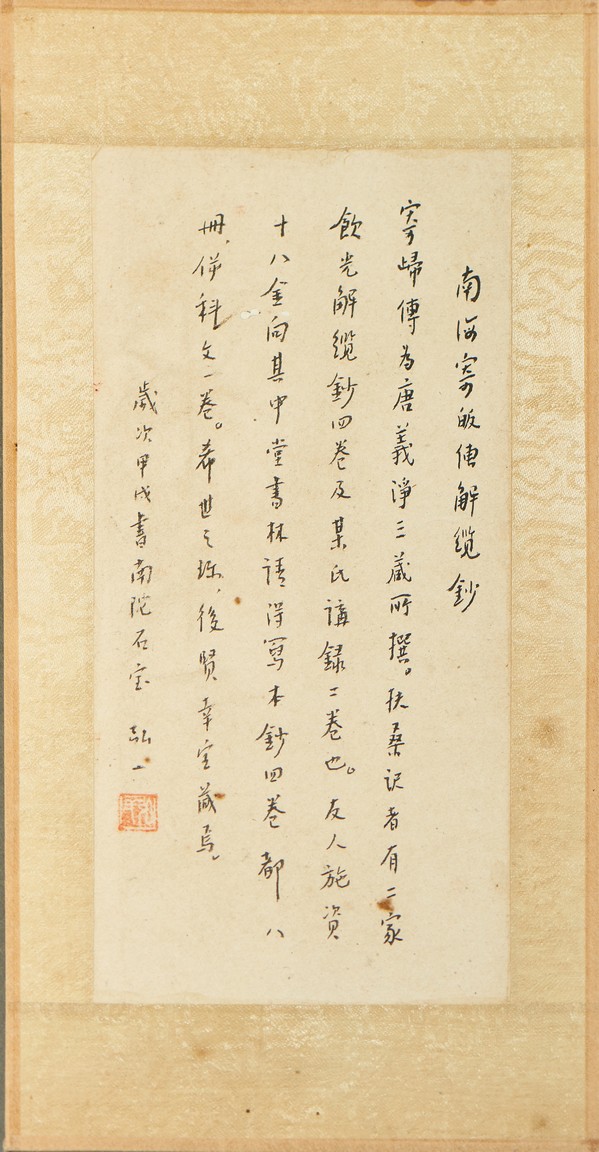 南海寄皈傳解纜鈔
寄歸傳為唐義淨三藏所撰。扶桑記者有二家
飲光解纜鈔四卷及某氏講録二卷也。友人施資
十八金向其中堂書林請得寫本鈔四卷都八
冊、併科文一卷。希世之珎、後賢幸宝藏焉。
歲次甲戌書南陀石室 弘一